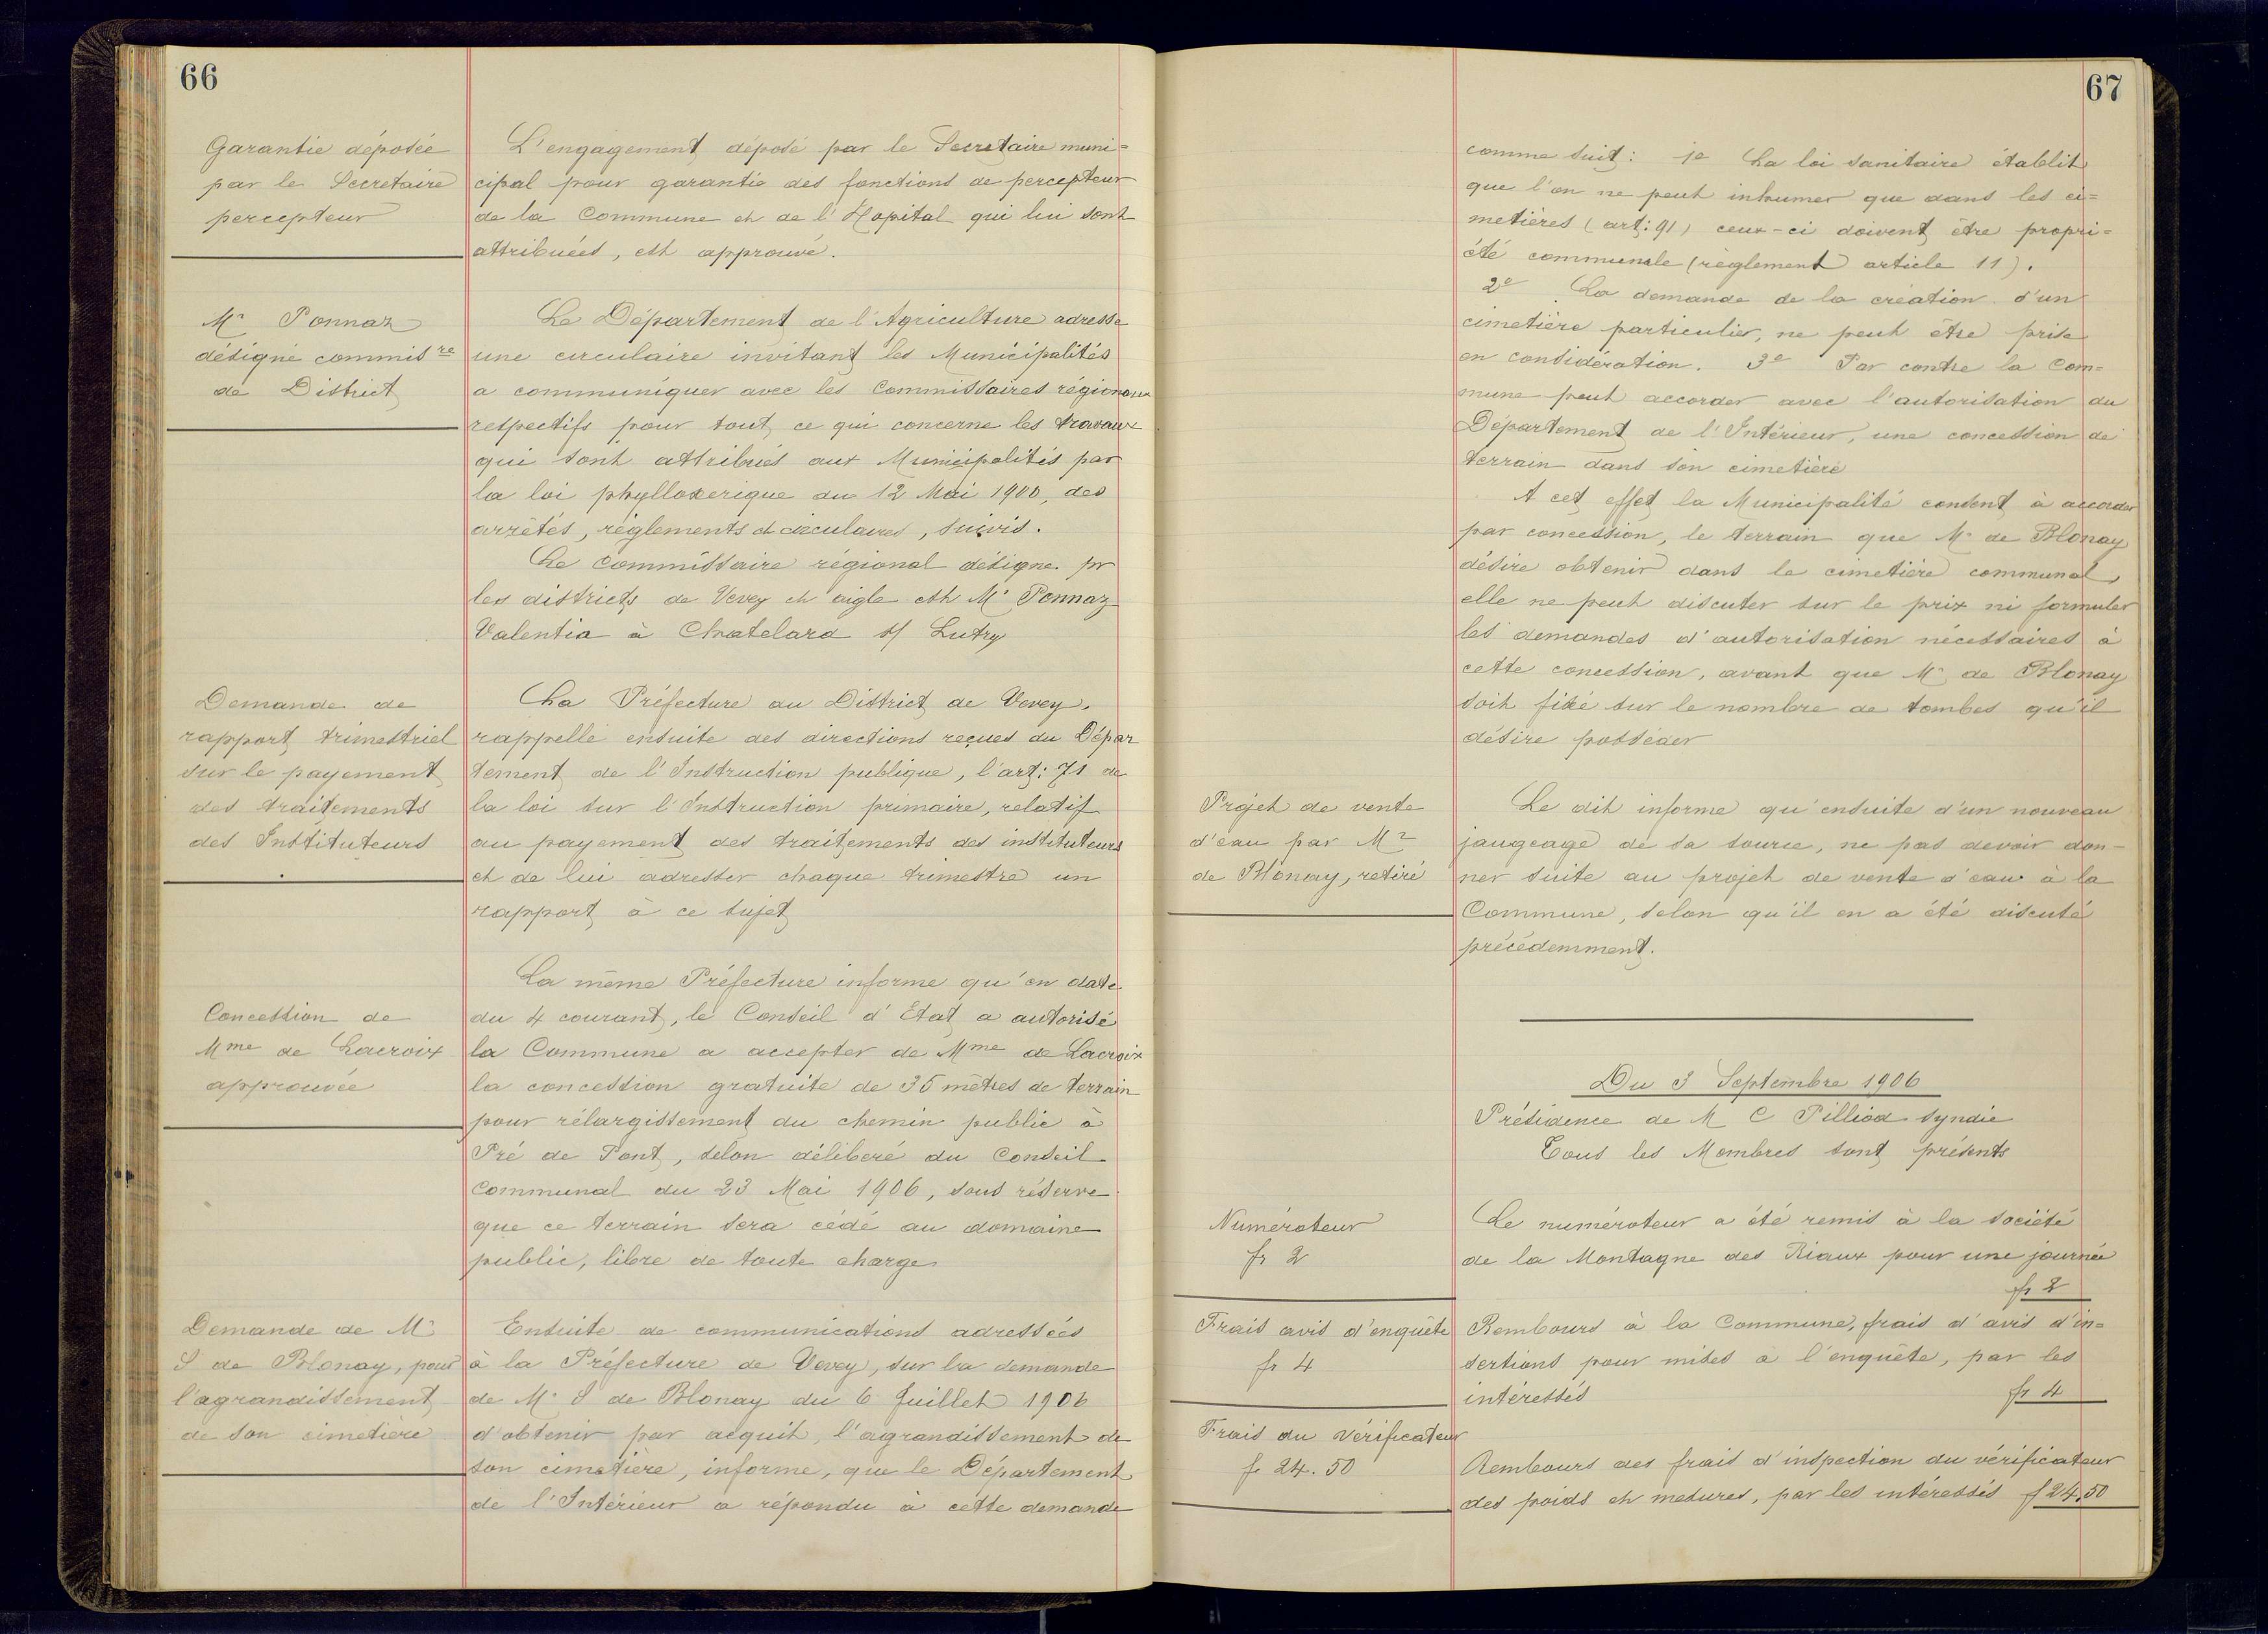 66
Garantie déposée
par le Secretaire
percepteur
L'engagement déposé par le Secretaire muni=
cipal pour garantie des fonctions de percepteur
de la Commune et de l'Hopital qui lui sont
attribuées, est approuvé.
Mr Ponnaz
désigné commisre
de District
Le Département de l'Agriculture adresse
une circulaire invitant les Municipalités
a communiquer avec les Commissaires régionaux
respectifs pour tout ce qui concerne les travaux
qui sont attribués aux Municipalités par
la loi phylloxerique du 12 Mai 1900, des
arrêtés, réglements et circulaires, suivis.
Le Commissaire régional désigné pr
les districts de Vevey et aigle est Mr Ponnaz
Valentin à Chatelard s/ Lutry
Demande de
rapport trimestriel
sur le payement
des traitements
des Instituteurs
La Préfecture du District de Vevey.
rappelle ensuite des directions reçues du Dépar
tement de l'Instruction publique, l'art: 71 de
la loi sur l'Instruction primaire, relatif
au payement des traitements des instituteurs
et de lui adresser chaque trimestre un
rapport à ce sujet
Concession de
Mme de Lacroix
approuvée
La même Préfecture informe qu'en date
du 4 courant, le Conseil d'Etat a autorisé
la Commune a accepter de Mme de Lacroix
la concession gratuite de 35 mètres de terrain
pour rélargissement du chemin public à
Pré de Pont, selon déliberé du Conseil
Communal du 23 Mai 1906, sous réserve
que ce terrain sera cédé au domaine
public, libre de toute charge
Demande de Mr
S de Blonay, pour
l'agrandissement
de son cimetière
Ensuite de communications adressées
à la Préfecture de Vevey, sur la demande
de Mr S de Blonay du 6 Juillet 1906
d'obtenir par acquit, l'agrandissement de
son cimetière, informe, que le Département
de l'Intérieur a répondu à cette demande
67
comme suit: 1e La loi sanitaire établit
que l'on ne peut inhumer que dans les ci=
metières (art: 91) ceux-ci doivent être propri=
été communale (règlement article 11).
2e La demande de la création d'un
cimetière particulier, ne peut être prise
en considération. 3e Par contre la Com=
mune peut accorder avec l'autorisation du
Département de l'Intérieur, une concession de
terrain dans son cimetière
A cet effet la Municipalité consent à accorder
par concession, le terrain que Mr de Blonay
désire obtenir dans le cimetière communal,
elle ne peut discuter sur le prix ni formuler
les demandes d'autorisation nécessaires à
cette concession, avant que Mr de Blonay
soit fixé sur le nombre de tombes qu'il
désire posséder
Projet de vente
d'eau par Mr
de Blonay, retiré
Le dit informe qu'ensuite d'un nouveau
jaugeage de sa source, ne pas devoir don-
ner suite au projet de vente d'eau à la
Commune, selon qu'il en a été discuté
précédemment.
Du 3 Septembre 1906
Présidence de M C Pilliod syndic
Tous les Membres sont présents
Numéroteur
fr 2
Le numéroteur a été remis à la société
de la Montagne des Riaux pour une journée
fr 2
Frais avis d'enquête
fr 4
Rembours à la Commune, frais d'avis d'in=
sertions pour mises à l'enquête, par les
intéressés fr 4
Frais du vérificateur
f. 24.50
Rembours des frais d'inspection du vérificateur
des poids et mesures, par les intéressés f 24.50